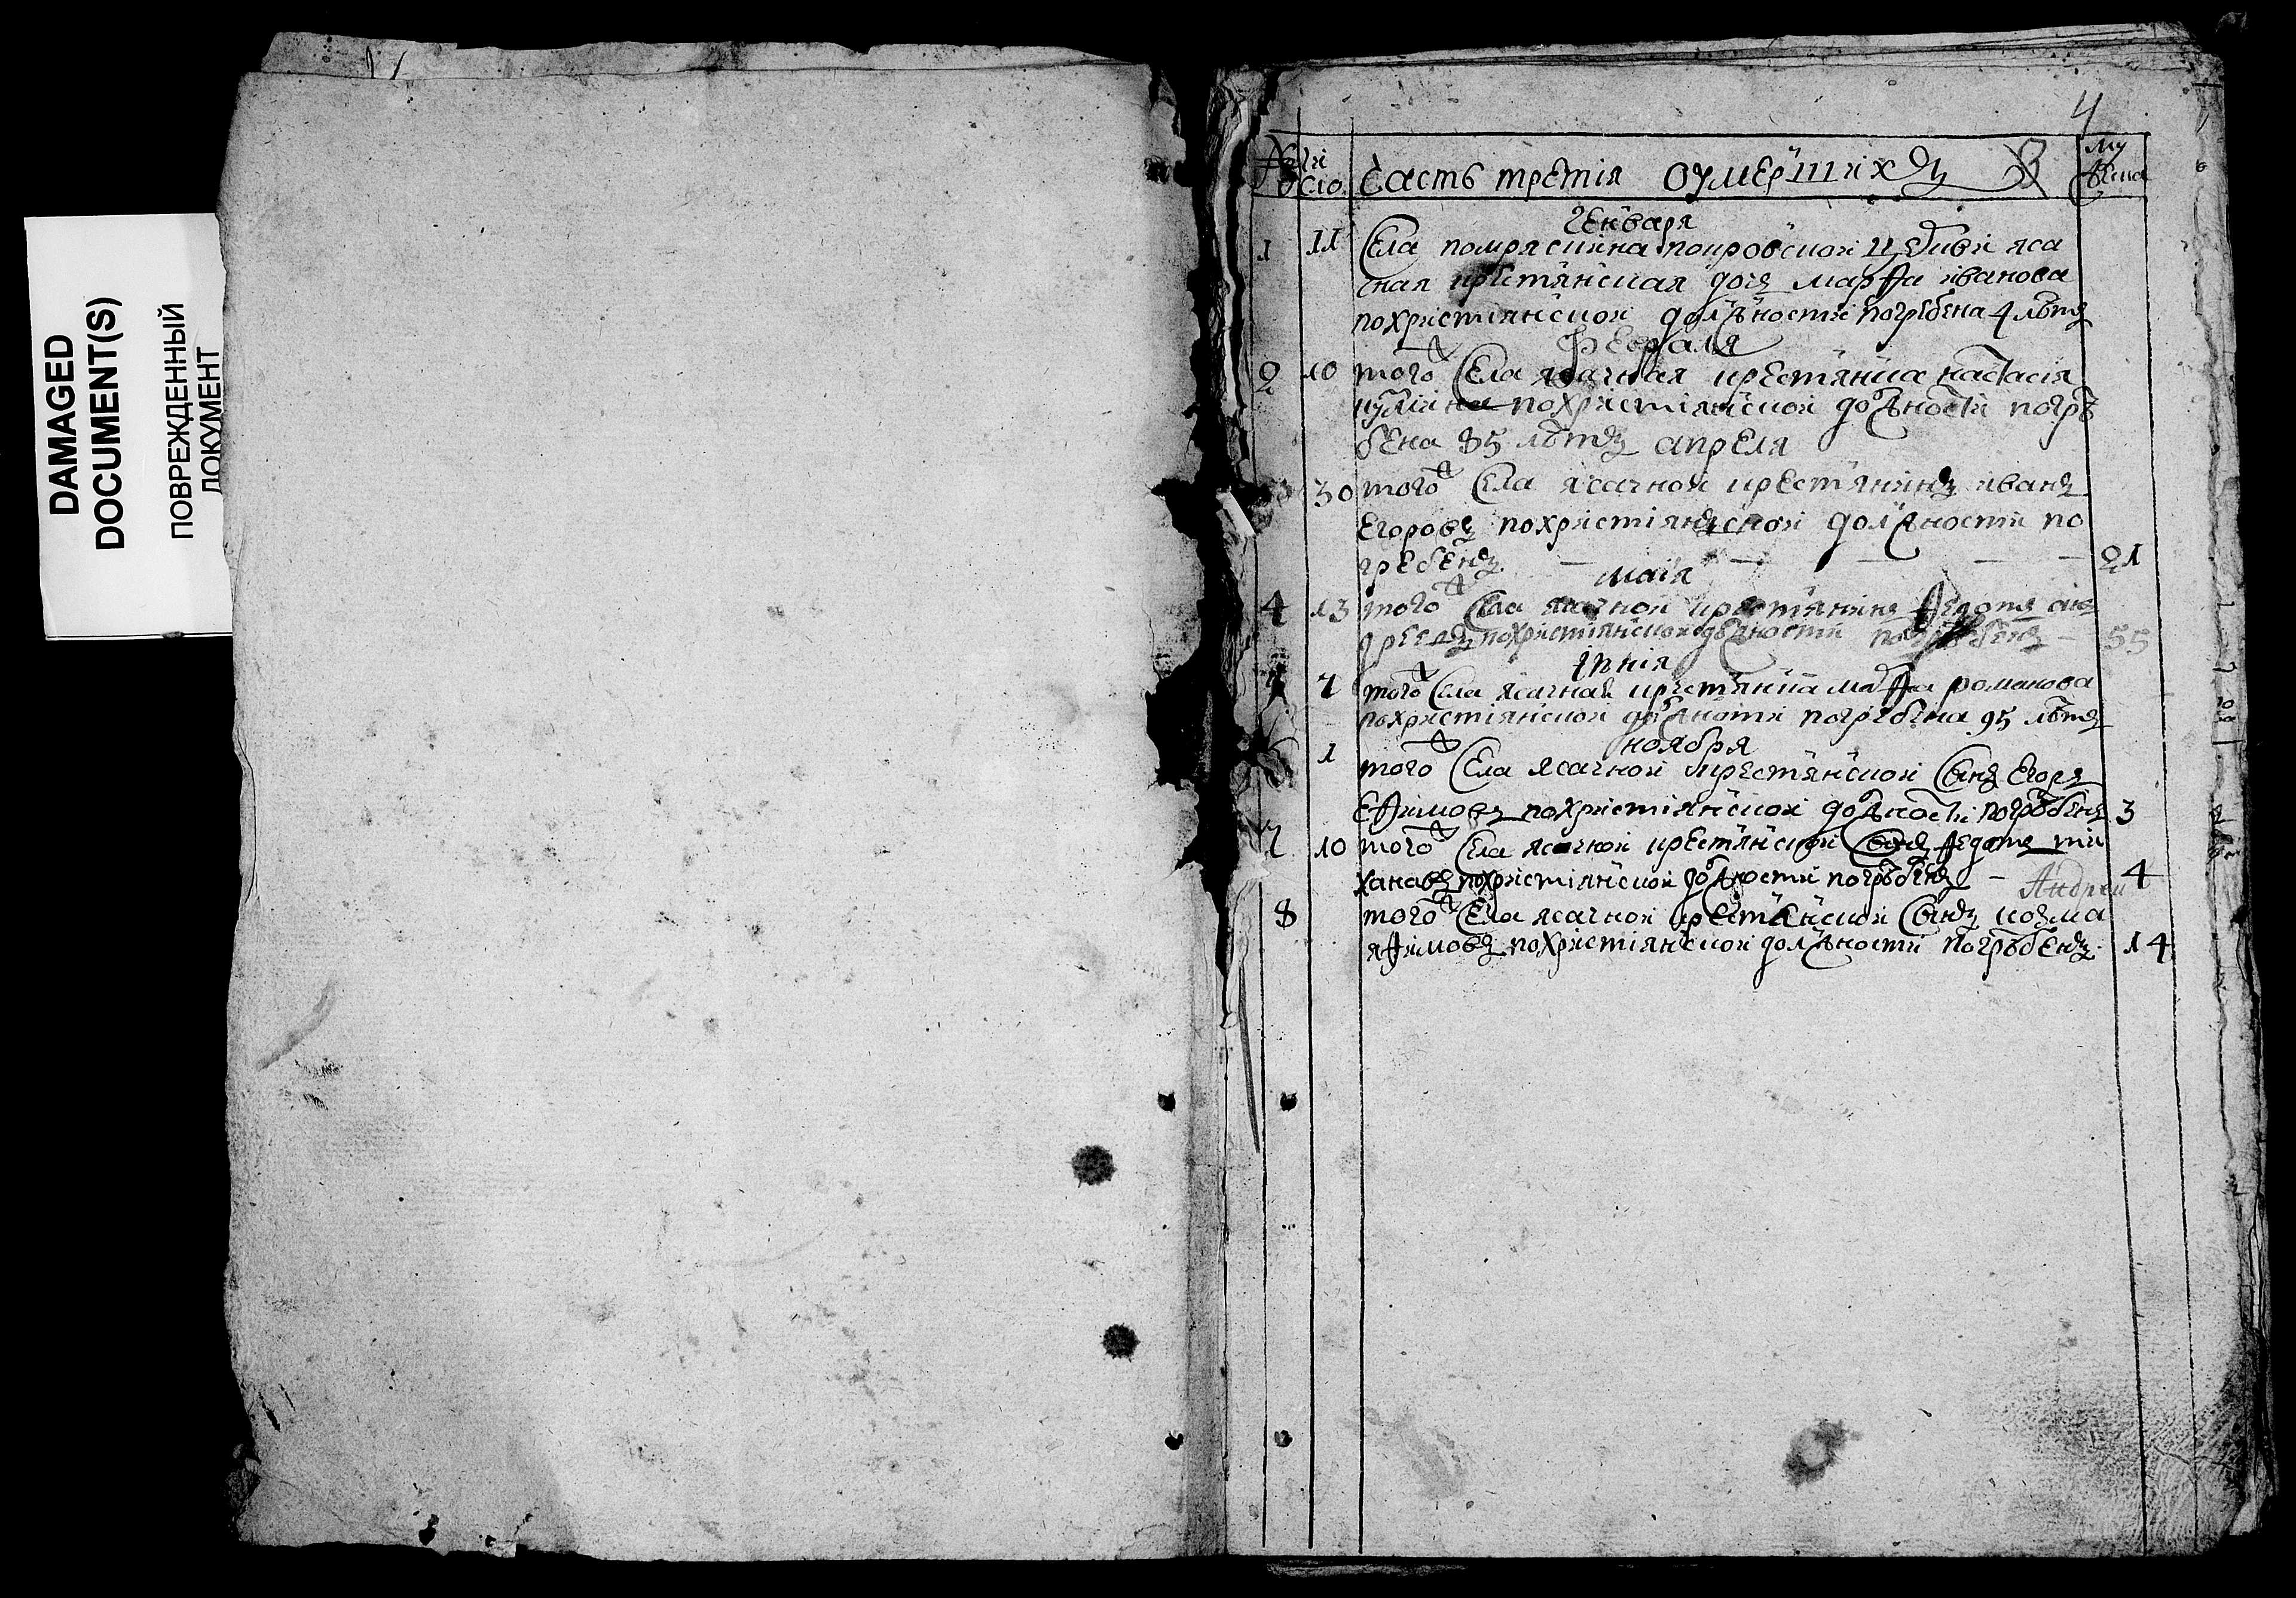 DAMAGED
DOCUMENT(S)
ПОВРЕЖДЕННЫЙ
ДОКУМЕНТ
4
Часть третія оумершихъ
Генъваря
1 11 Села помряскина покровской церкви яса
чная крестьянская дочь марѳа иванова
похристіянской должности погребена 4 лѣтъ
Февраля
2 10 того Села ясачная крестьянка настасія
похристіянской должности погрѣ
бена 85 лѣтъ апреля
30 того Села ясачной крестьянинъ иванъ
Егоровъ похристіянъской должности по
гребенъ 21
маія
4 13 того Села ясачной крестьянинъ Ѳедотъ ан
дреевъ похристіянской должности погребенъ 55
іюнія
7 того Села ясачная крестьянка марѳа романова
похристіянской должности погребена 95 лѣтъ
ноября
1 того Села ясачной крестьянской Сынъ Егоръ
Еѳимовъ похристіянской должности погрѣбенъ 3
7 10 того Села ясачной крестьянской Сынъ Ѳедотъ ти
хановъ похристіянской должности погрѣбенъ 4
Андреи
8 того Села ясачной крестьянской Сынъ козма
яѳимовъ похристіянской должности погрѣбенъ 14